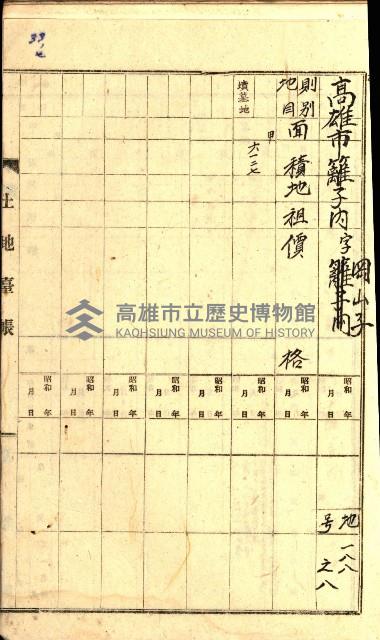 高雄市籬子內字籬子內
岡山子
地号 一八八之八
地目 則別
面積
地租
價格
墳墓地
甲
六一二七
昭和 年 月 日
昭和 年 月 日
昭和 年 月 日
昭和 年 月 日
昭和 年 月 日
昭和 年 月 日
昭和 年 月 日
土地臺帳
高雄市立歷史博物館
KAOHSIUNG MUSEUM OF HISTORY